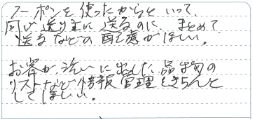 クーポンを使ったからといって
同じ送り主に送るのに、まとめて
送るなどの配慮がほしい。
お客が洗いに出した品物の
リストなど情報管理をきちんと
してほしい。